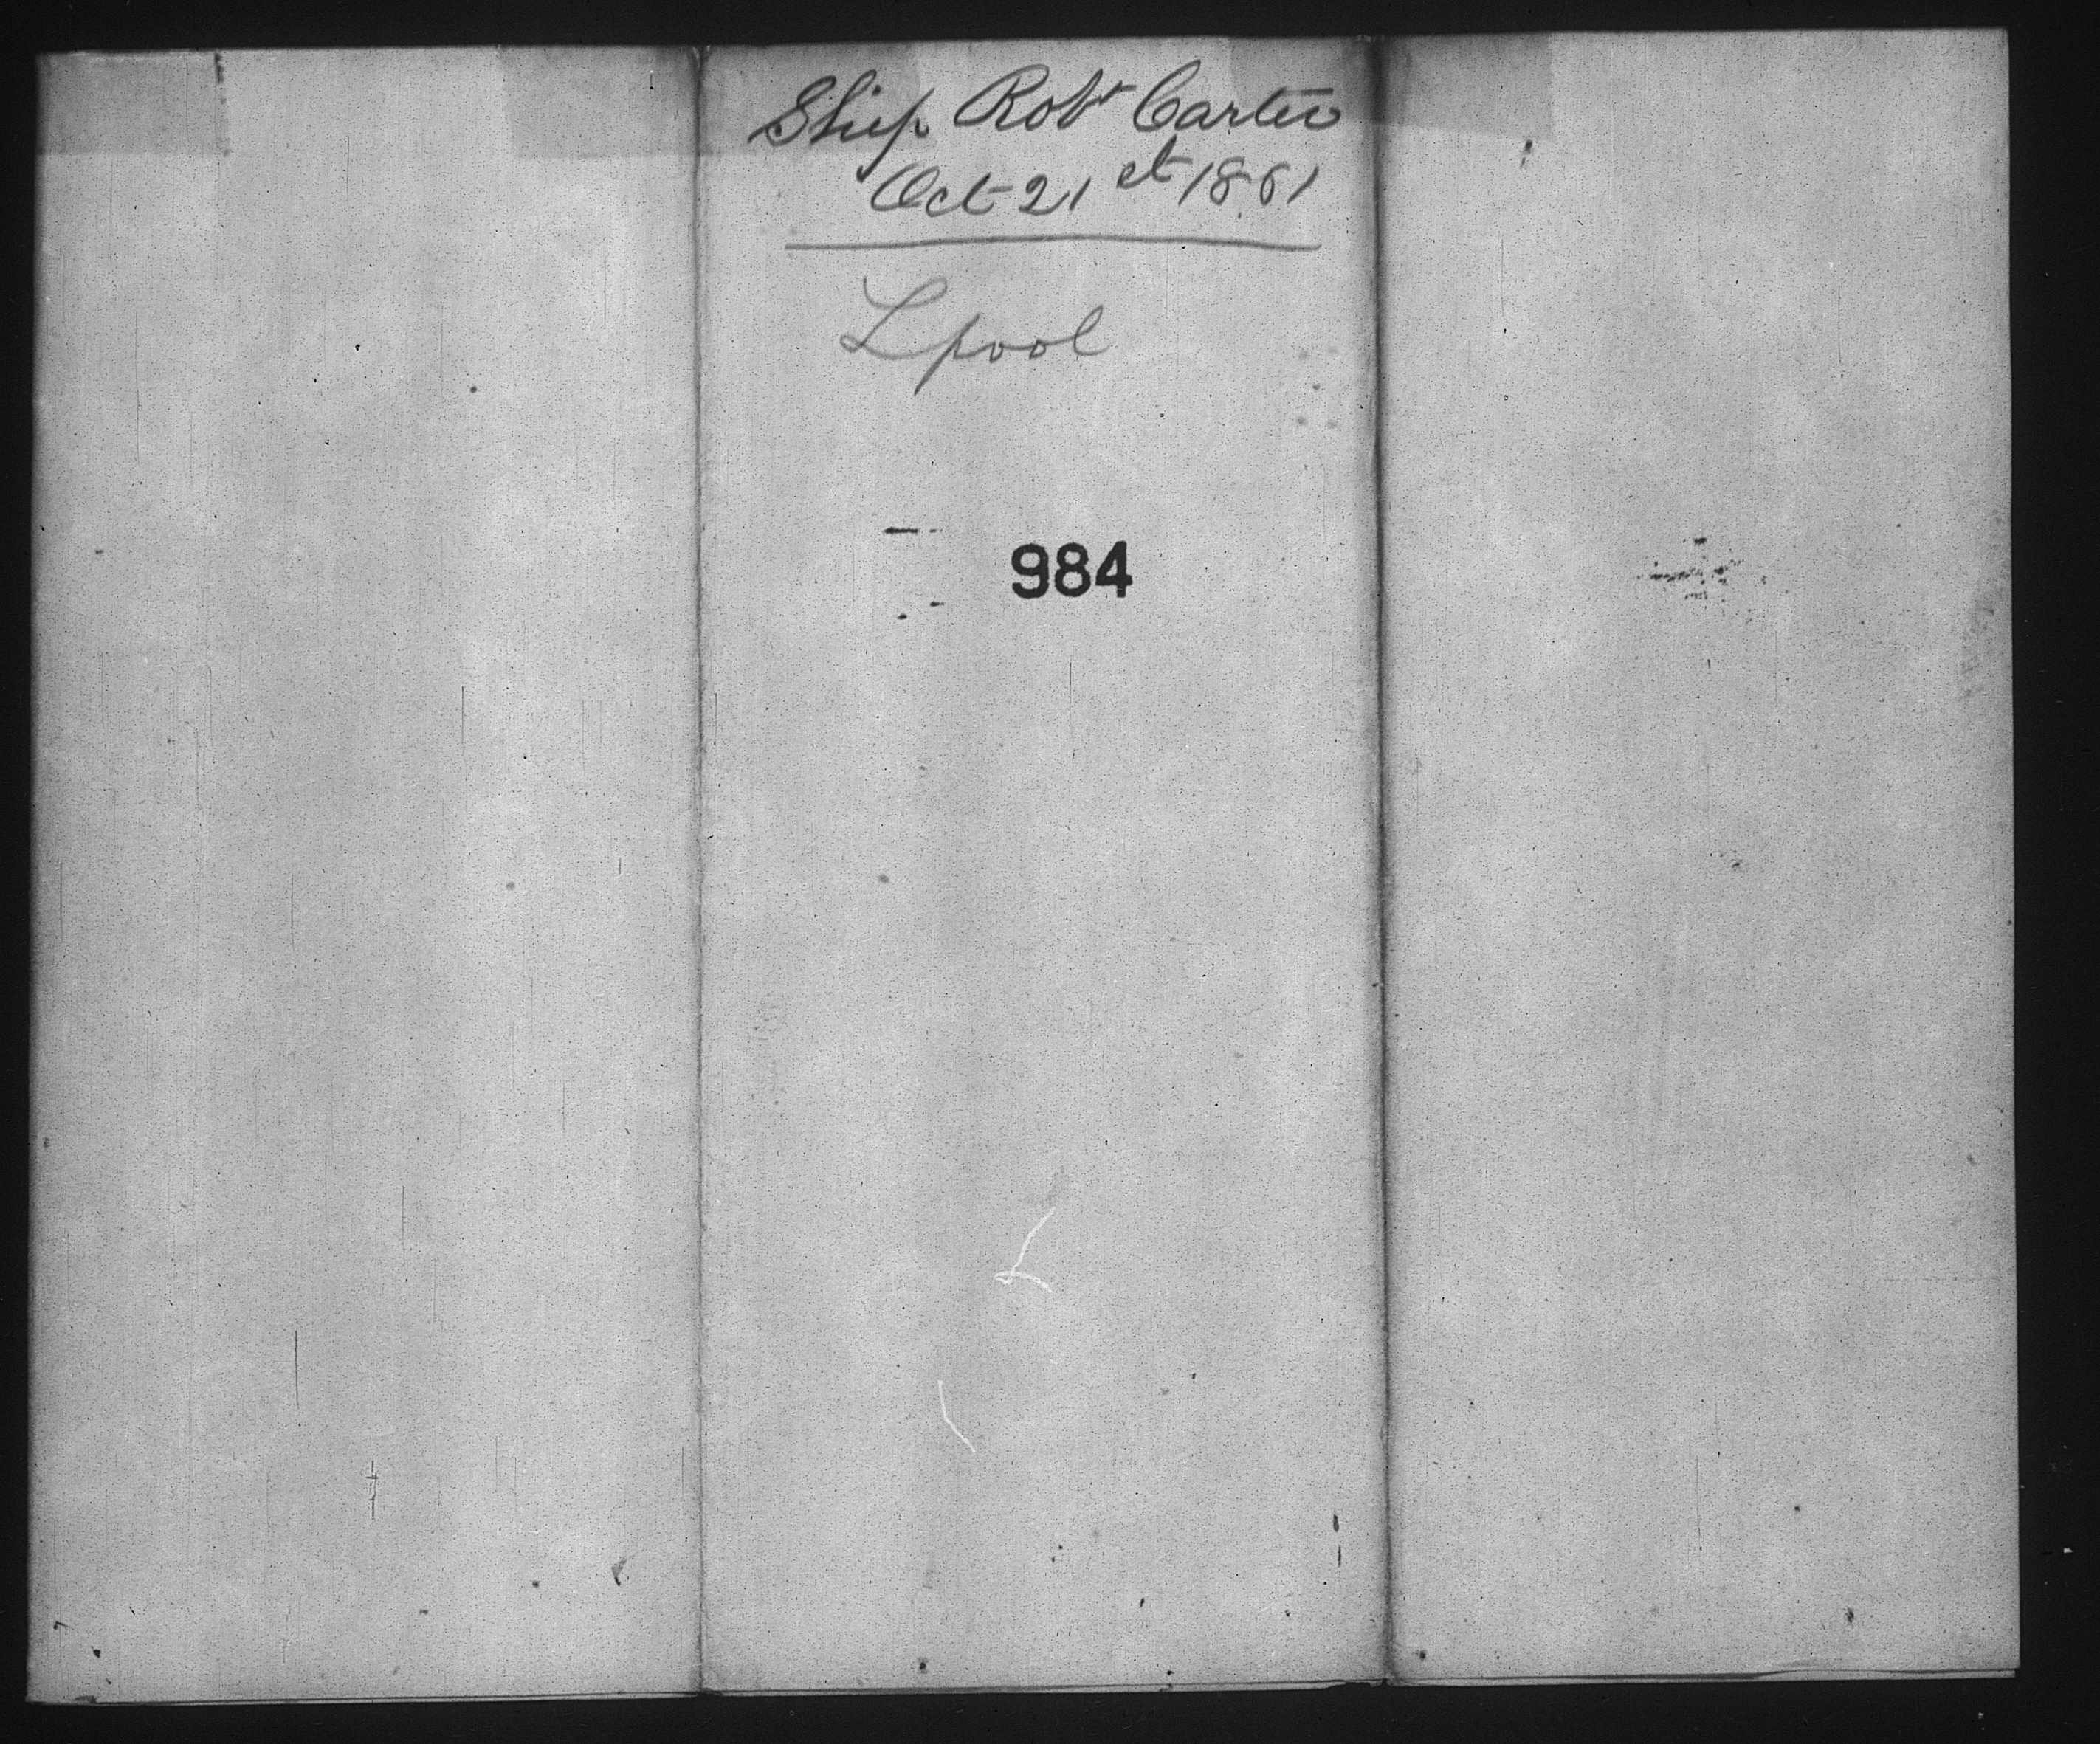 Ship Robt Carter
Oct 21st 1861
Lpool
984